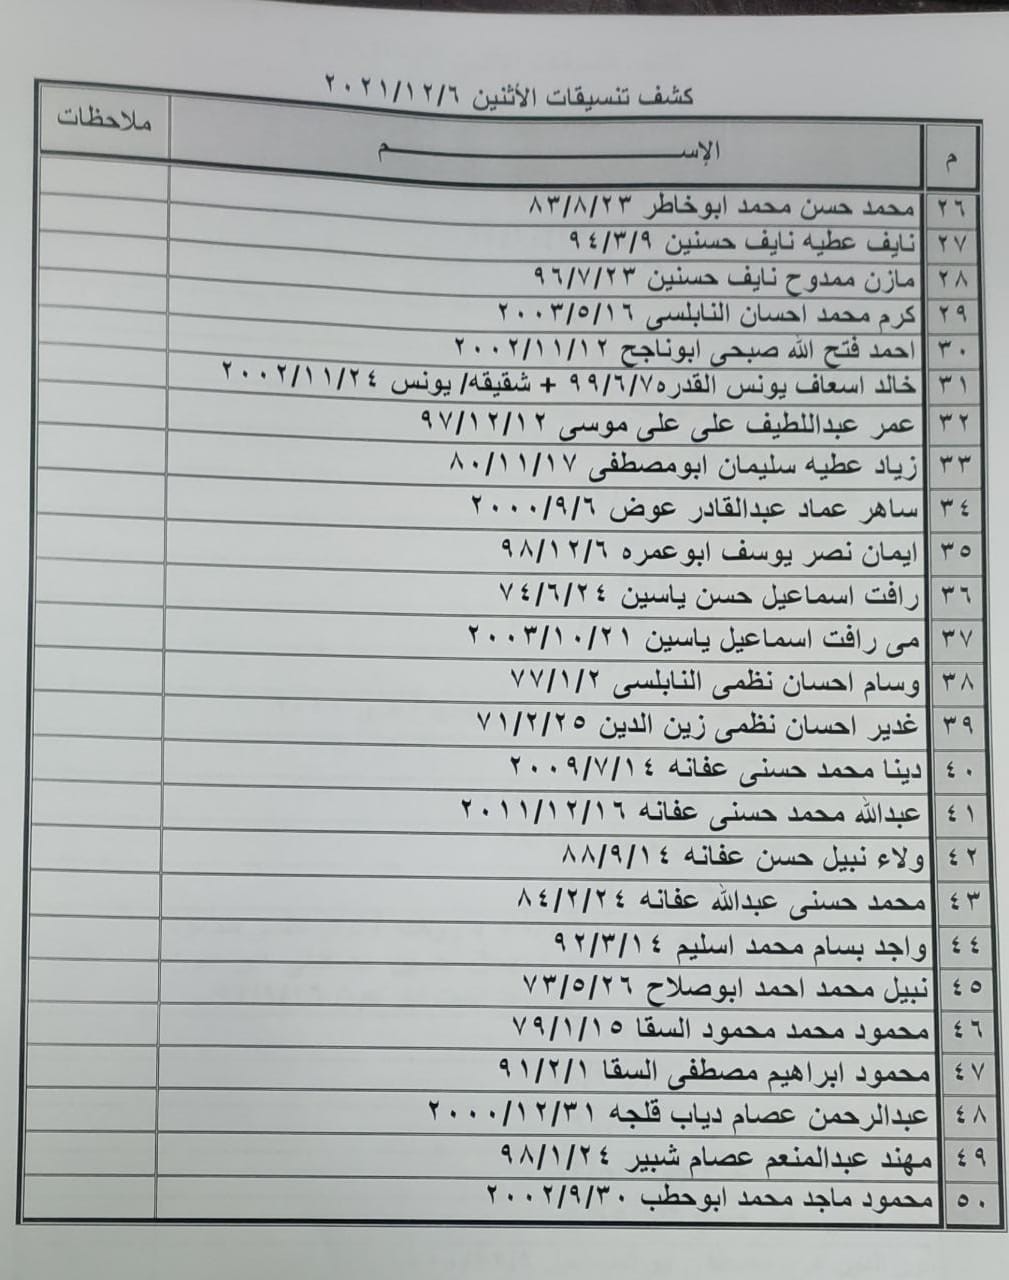 كشف تنسيقات الأثنين ٢٠٢١/١٢/٦
م الإســـــــــم ملاحظات
٢٦ محمد حسن محمد ابوخاطر ٨٣/٨/٢٣
٢٧ نايف عطيه نايف حسنين ٩٤/٣/٩
٢٨ مازن ممدوح نايف حسنين ٩٦/٧/٢٣
٢٩ كرم محمد احسان النابلسى ٢٠٠٣/٥/١٦
٣٠ احمد فتح الله صبحى ابوناجح ٢٠٠٢/١١/١٢
٣١ خالد اسعاف يونس القدره٩٩/٦/٧ + شقيقه/ يونس ٢٠٠٢/١١/٢٤
٣٢ عمر عبداللطيف على على موسى ٩٧/١٢/١٢
٣٣ زياد عطيه سليمان ابومصطفى ٨٠/١١/١٧
٣٤ ساهر عماد عبدالقادر عوض ٢٠٠٠/٩/٦
٣٥ ايمان نصر يوسف ابوعمره ٩٨/١٢/٦
٣٦ رافت اسماعيل حسن ياسين ٧٤/٦/٢٤
٣٧ مى رافت اسماعيل ياسين ٢٠٠٣/١٠/٢١
٣٨ وسام احسان نظمى النابلسى ٧٧/١/٢
٣٩ غدير احسان نظمى زين الدين ٧١/٢/٢٥
٤٠ دينا محمد حسنى عفانه ٢٠٠٩/٧/١٤
٤١ عبدالله محمد حسنى عفانه ٢٠١١/١٢/١٦
٤٢ ولاء نبيل حسن عفانه ٨٨/٩/١٤
٤٣ محمد حسنى عبدالله عفانه ٨٤/٢/٢٤
٤٤ واجد بسام محمد اسليم ٩٢/٣/١٤
٤٥ نبيل محمد احمد ابوصلاح ٧٣/٥/٢٦
٤٦ محمود محمد محمود السقا ٧٩/١/١٥
٤٧ محمود ابراهيم مصطفى السقا ٩١/٢/١
٤٨ عبدالرحمن عصام دياب قلجه ٢٠٠٠/١٢/٣١
٤٩ مهند عبدالمنعم عصام شبير ٩٨/١/٢٤
٥٠ محمود ماجد محمد ابوحطب ٢٠٠٢/٩/٣٠